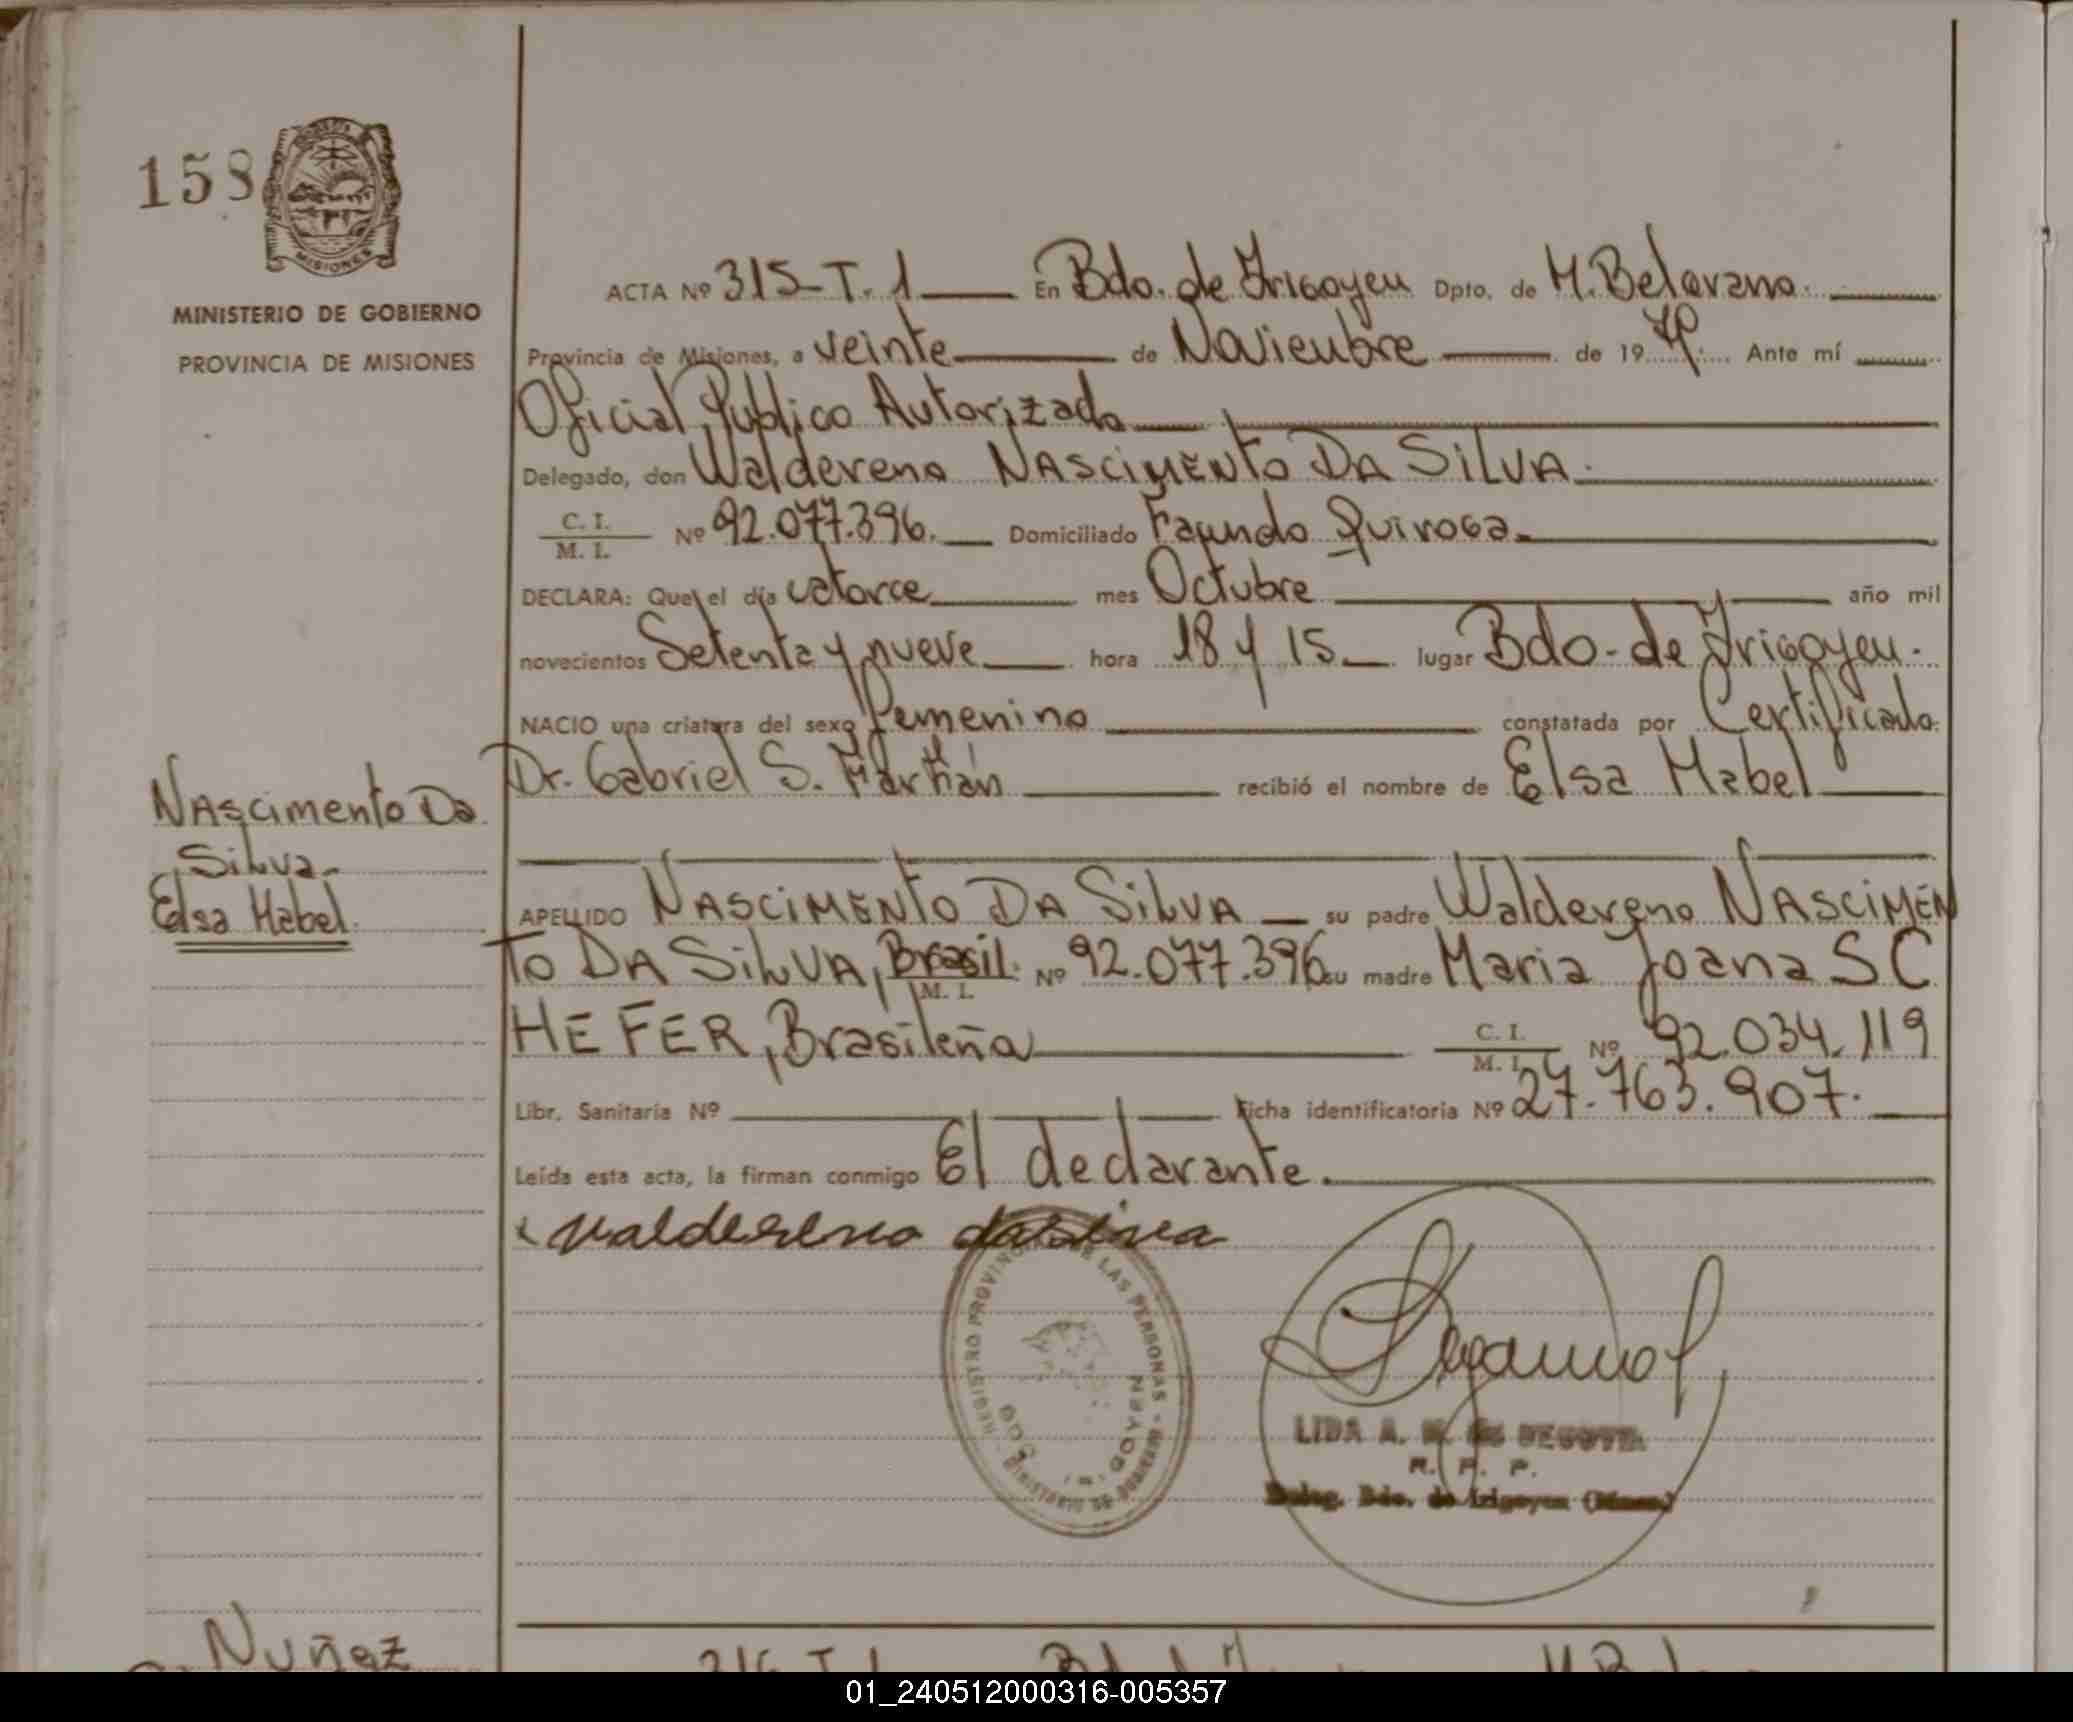 158
MISIONES
MINISTERIO DE GOBIERNO
PROVINCIA DE MISIONES
ACTA Nº 315-T. 1 En Bdo. de Irigoyen Dpto. de M. Belgrano.
Provincia de Misiones, a veinte de Noviembre de 19 79. Ante mí
Oficial Publico Autorizado
Delegado, don Waldereno NASCIMENTO DA SILVA.
C. I.
M. I. Nº 92.077.396. Domiciliado Facundo Quiroga.
DECLARA: Que el día catorce mes Octubre año mil
novecientos Setenta y nueve hora 18 y 15 lugar Bdo. de Irigoyen.
NACIO una criatura del sexo femenino constatada por Certificado
Dr. Gabriel S. Martián recibió el nombre de Elsa Mabel
Nascimento Da
Silva.
Elsa Mabel.
APELLIDO NASCIMENTO DA SILVA su padre Waldereno NASCIMEN
TO DA SILVA, Brasil. M. I. Nº 92.077.396 su madre Maria Joana SC
HEFER, Brasileña C. I. M. I. Nº 92.034.119
Libr. Sanitaria Nº Ficha identificatoria Nº 27.763.907.
Leída esta acta, la firman conmigo El declarante.
Valdereno dasilva
REGISTRO PROVINCIAL DE LAS PERSONAS - MINISTERIO DE GOBIERNO
BDO. IRIGOYEN
LIDA A. M. de
R. P. P.
Deleg. Bdo. de Irigoyen (Mnes.)
Nuñez
316 T. 1
01_240512000316-005357